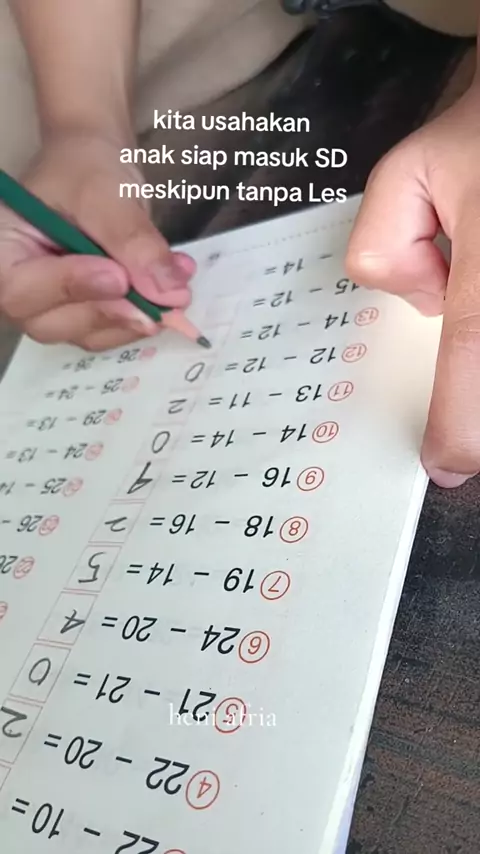 kita usahakan
anak siap masuk SD
meskipun tanpa Les
22 - 10 =
④ 22 - 20 = 2
⑤ 21 - 21 = 0
⑥ 24 - 20 = 4
⑦ 19 - 14 = 5
⑧ 18 - 16 = 2
⑨ 16 - 12 = 4
⑩ 14 - 14 = 0
⑪ 13 - 11 = 2
⑫ 12 - 12 = 0
⑬ 14 - 12 =
15 - 12 =
- 14 =
26 -
24 - 13 =
29 - 13 =
25 - 24 =
26 - 26 =
heni afria